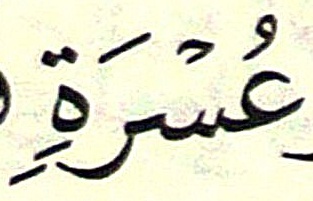 عُسْرَةِ